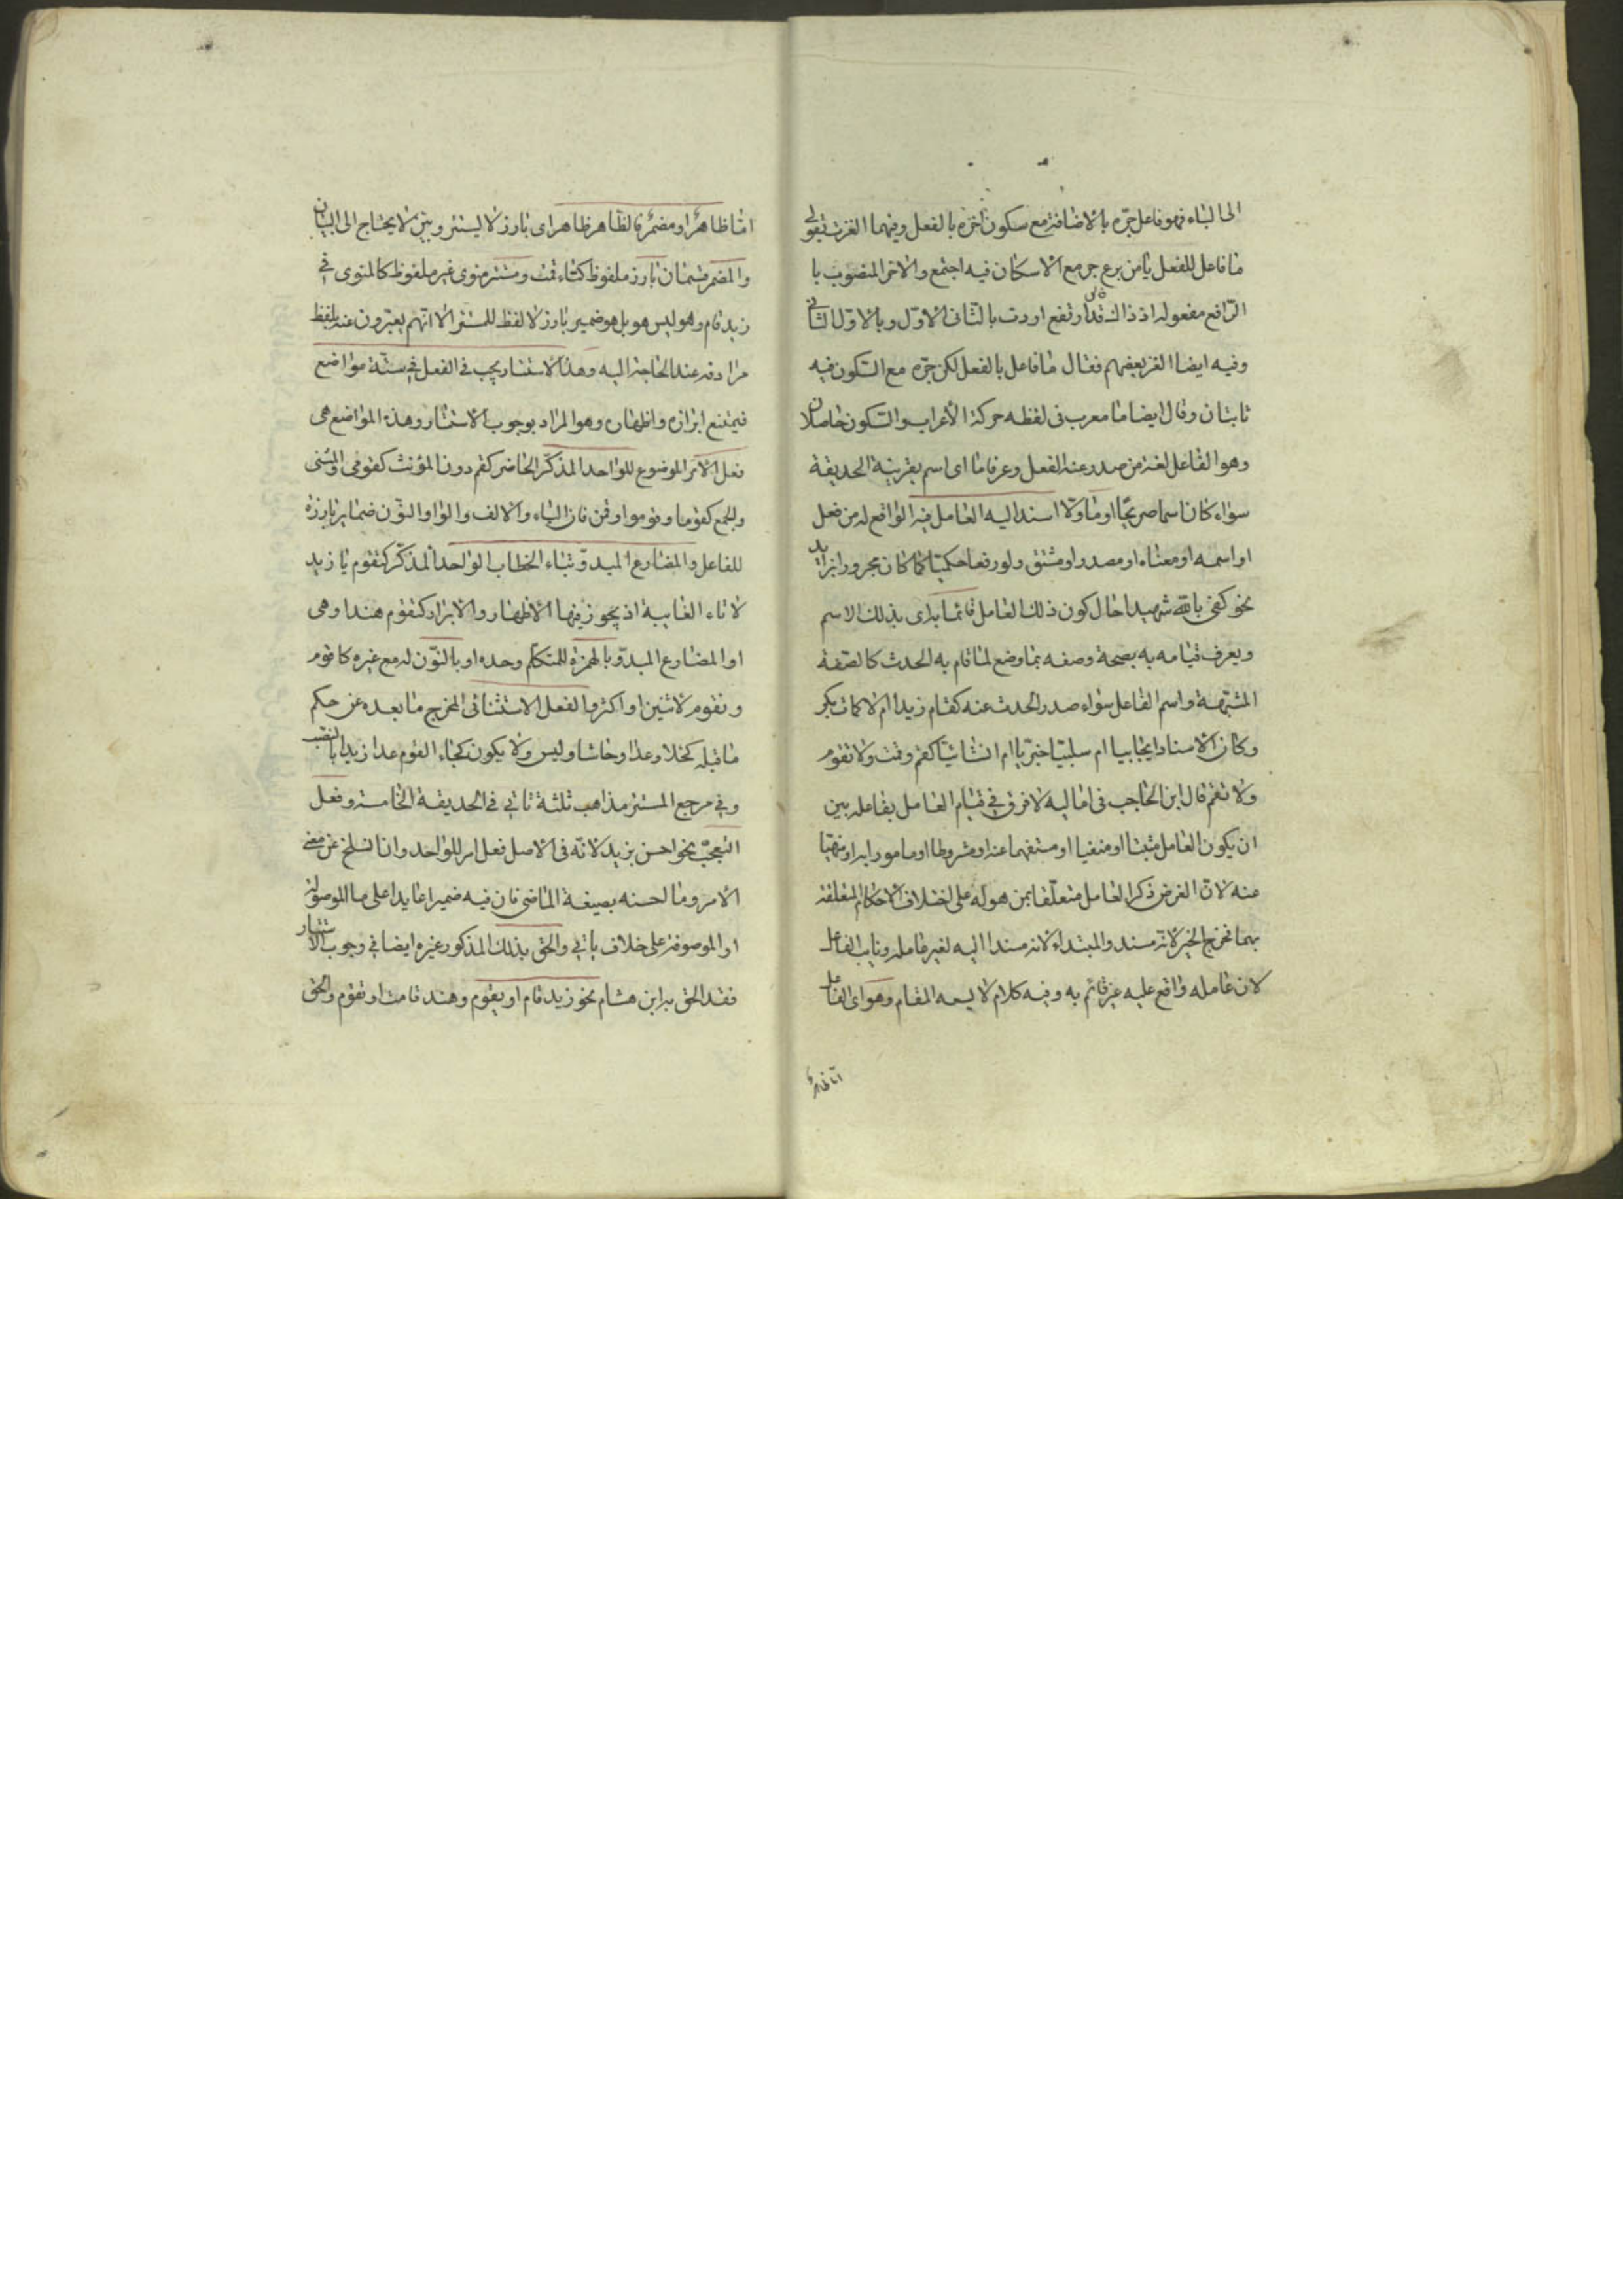 الى الياء فهو فاعل جره بالاضافة مع سكون اخره بالفعل وفيهما الغزت بقولي
ما فاعل للفعل يا من برع جر مع الاسكان فيه اجتمع والاخر المنصوب با
الرافع مفعوله اذ ذاك قد ارتفع اردت بالثانى الاول وبالاول الثانى
وفيه ايضا الغز بعضهم فقال ما فاعل بالفعل لكن جره مع السكون فيه
ثابتان وقال ايضا ما معرب فى لفظه حركة الأعراب والسكون حاصلان
وهو الفاعل لغة من صدر عنه الفعل وعرفا ما اى اسم بقرينة الحديقة
سواء كان اسما صريحا او مأولا اسند اليه العامل فيه الواقع له من فعل
او اسمه او معناه او مصدر او مشتق ولو رفعا حكميا كما كان مجرورا بزايد
نحو كفى بالله شهيدا حال كون ذلك العامل قائما به اى بذلك الاسم
ويعرف قيامه به بصحة وصفه بما وضع لما قام به الحدث كالصفة
المشبهة واسم الفاعل سواء صدر الحدث عنه كقام زيد ام لا كمات بكر
وكان الاسناد ايجابيا ام سلبيا خبريا ام انشائيا كقم وقمت ولا تقوم
ولا تقم قال ابن الحاجب فى اماليه لا فرق فى قيام العامل بفاعله بين
ان يكون العامل مثبتا او منفيا او مستفهما عنه او مشروطا او مامورا به او منهيا
عنه لان الغرض ذكر العامل متعلقا بمن هو له على اختلاف الاحكام المتعلقة
بهما فخرج الخبر لانه مسند والمبتداء لانه مسندا اليه لغير عامله ونايب الفاعل
لان عامله واقع عليه غير قائم به وفيه كلام لا يسعه المقام وهو اى الفاعل
اما ظاهر
اما ظاهر او مضمر فالظاهر ظاهر اى بارز لا يستتر وبين لا يحتاج الى البيان
والمضمر قسمان بارز ملفوظ كتاء قمت ومستتر منوى غير ملفوظ كالمنوى فى
زيد قام وهو ليس هو بل هو ضمير بارز لا لفظ للمستتر الا انهم يعبرون عنه بلفظ
مرادفه عند الحاجة اليه وهذا الاستتار يجب فى الفعل فى ستة مواضع
فيمتنع ابرازه واظهاره وهو المراد بوجوب الاستتار وهذه المواضع هى
فعل الامر الموضوع للواحد المذكر الحاضر كقم دون المؤنث كقومى والمثنى
والجمع كقوما وقوموا وقمن فان الياء والالف والواو والنون ضماير بارزة
للفاعل والمضارع المبدو بتاء الخطاب الواحد المذكر كتقوم يا زيد
لا تاء الغايبة اذ يجوز فيها الاظهار والابراز كتقوم هند وهى
او المضارع المبدو بالهمزة للمتكلم وحده او بالنون له مع غيره كاقوم
ونقوم لاثنين او اكثر والفعل الاستثنائى المخرج ما بعده عن حكم
ما قبله كخلا وعدا وحاشا وليس ولا يكون كجاء القوم عدا زيدا بالنصب
وفى مرجع المستتر مذاهب ثلثة تاتى فى الحديقة الخامسة وفعل
التعجب نحو احسن بزيد لانه فى الاصل فعل امر للواحد وان انسلخ عن معنى
الامر وما احسنه بصيغة الماضى فان فيه ضميرا عايدا على ما الموصولة
او الموصوفة على خلاف ياتى والحق بذلك المذكور غيره ايضا فى وجوب الاستتار
فقد الحق به ابن هشام نحو زيد قام او يقوم وهند قامت او تقوم والحق